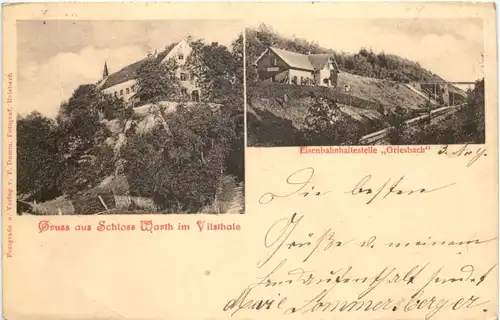 Eisenbahnhaltestelle „Griesbach“
Gruss aus Schloss Warth im Vilsthale
Fotografie u. Verlag v. F. Damm, Fotograf, Reisbach
Die besten
Grüße v. meinem
Landaufenthalt sendet
Sommersberger.